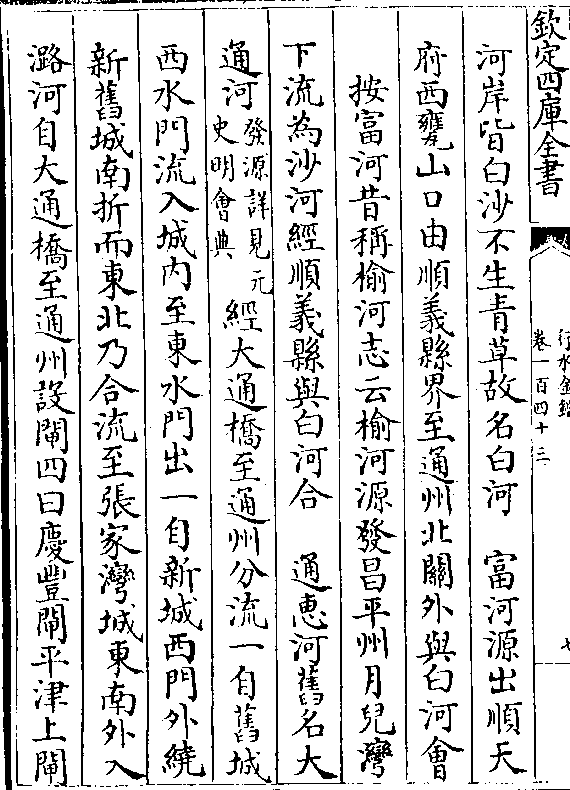 欽定四庫全書
行水金鑑
卷一百四十三
七
河岸皆白沙不生青草故名白河　富河源出順天
府西甕山口由順義縣界至通州北關外與白河會
按富河昔稱榆河志云榆河源發昌平州月兒灣
下流為沙河經順義縣與白河合　通惠河舊名大
通河發源詳見元史明會典經大通橋至通州分流一自舊城
西水門流入城内至東水門出一自新城西門外繞
新舊城南折而東北乃合流至張家灣城東南外入
潞河自大通橋至通州設閘四曰慶豐閘平津上閘